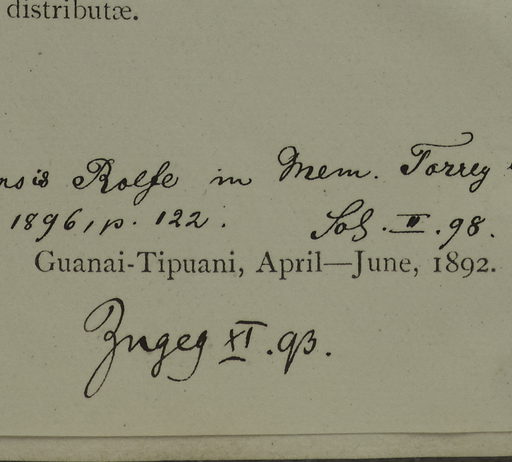 distributæ.
nsis Rolfe in Mem. Torrey
1896, p. 122. Sol. II. 98.
Guanai-Tipuani, April—June, 1892.
Zugeg XI. 93.